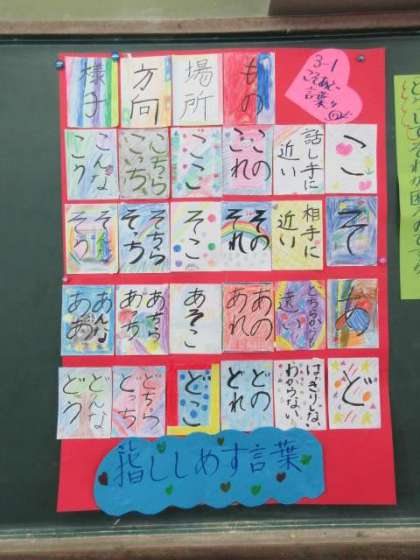 3-1
こそあど
言葉
もの
場所
方向
様子
こ
話し手に
近い
この
これ
ここ
こちら
こっち
こんな
こう
そ
相手に
近い
その
それ
そこ
そちら
そっち
そんな
そう
あ
どちらからも
遠い
あの
あれ
あそこ
あちら
あっち
あんな
ああ
ど
はっきりしない
わからない
どの
どれ
どこ
どちら
どっち
どんな
どう
指ししめす言葉